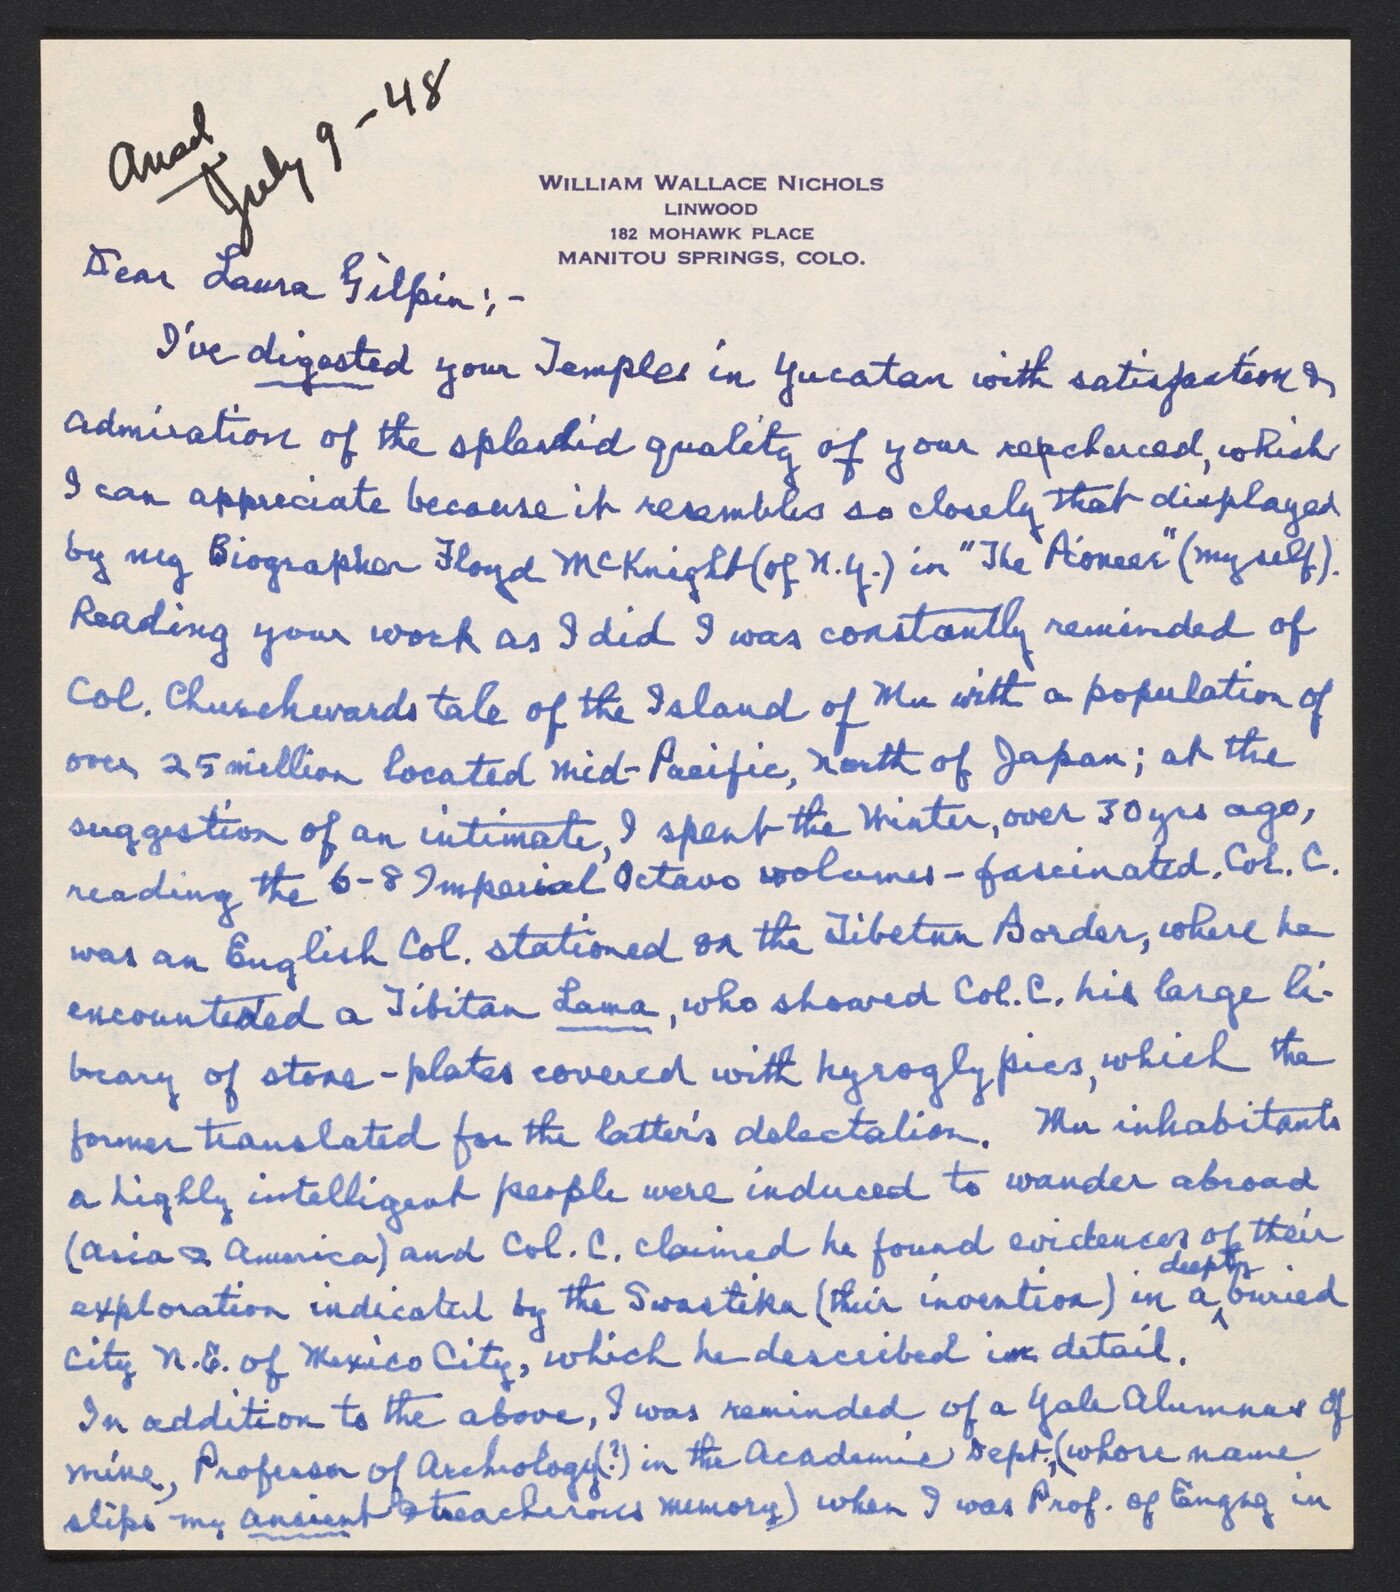 Ansd
July 9-48
WILLIAM WALLACE NICHOLS
LINWOOD
182 MOHAWK PLACE
MANITOU SPRINGS, COLO.
Dear Laura Gilpin:,-
I've digested your Temples in Yucatan with satisfaction &
admiration of the splendid quality of your which
I can appreciate because it resembles so closely that displayed
by my Biographer Floyd McKnight (of N.Y.) in "The Pioneer" (myself).
Reading your work as I did I was constantly reminded of
Col. Churchwards tale of the Island of Mu with a population of
over 25 million located mid-Pacific, North of Japan; at the
suggestion of an intimate, I spent the Winter, over 30 yrs ago,
reading the 6-8 Imperial Octavo volumes - fascinated. Col. C.
was an English Col. stationed on the Tibetan Border, where he
encounteded a Tibitan Lama, who showed Col. C. his large li-
brary of stone-plates covered with hyroglypics, which the
former translated for the latter's delectation. Mu inhabitants
a highly intelligent people were induced to wander abroad
(Asia & America) and Col. C. claimed he found evidences of their
exploration indicated by the Swastika (their invention) in a deeply buried
City N.E. of Mexico City, which he described in detail.
In addition to the above, I was reminded of a Yale Alumnus of
mine, Professor of Archiology(?) in the Academic Dept., (whose name
slips my ansient & treacherous memory) when I was Prof. of Engng in